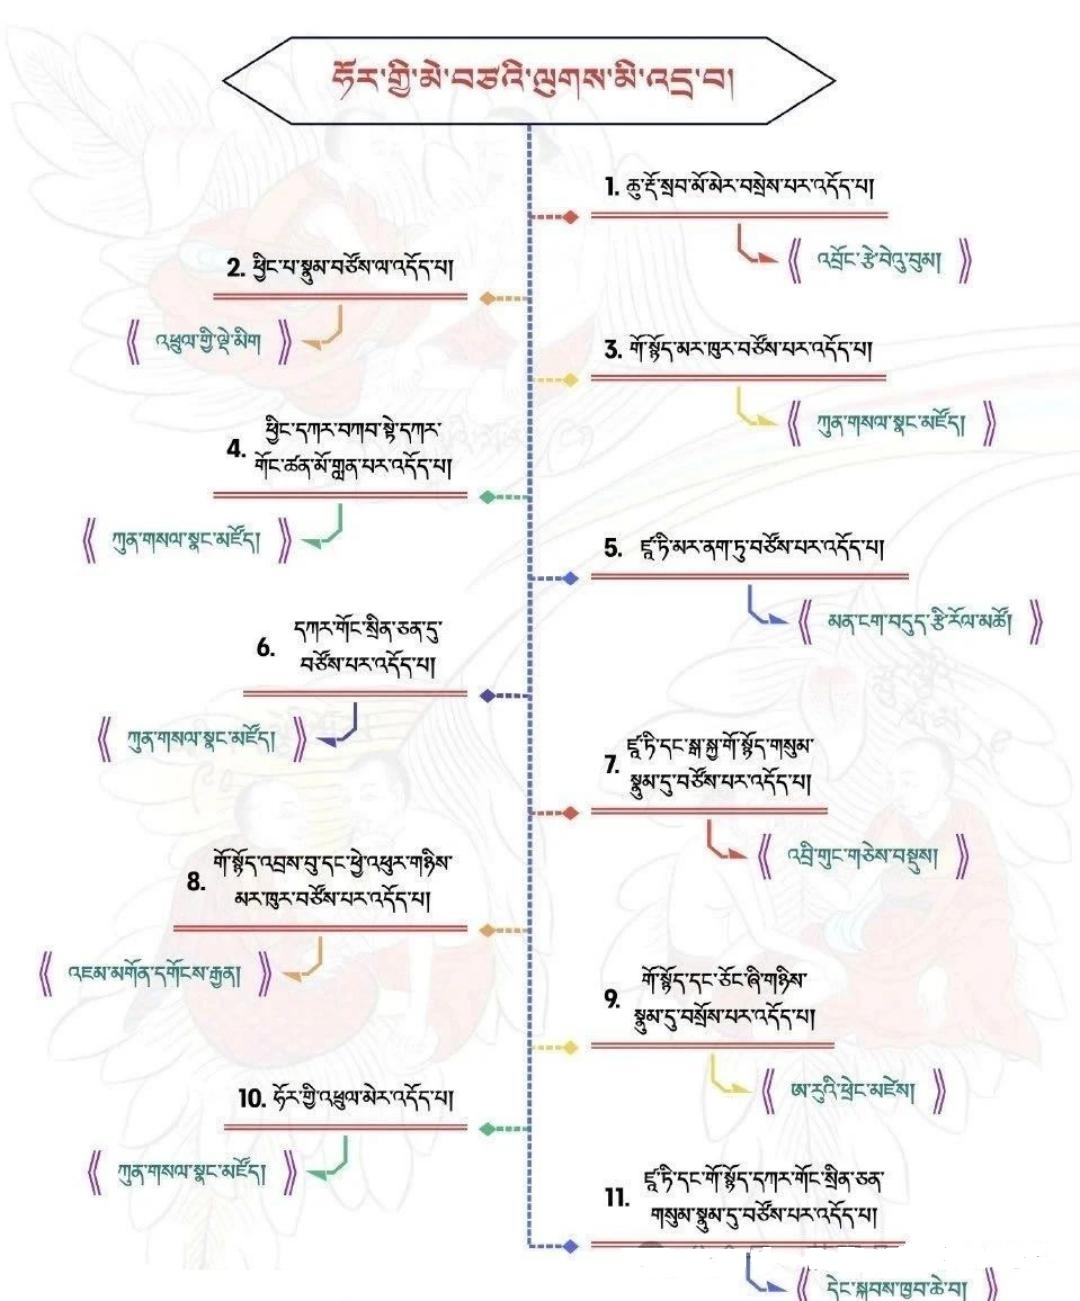 ཧོར་གྱི་མེ་བཙའི་ལུགས་མི་འདྲ་བ།
1. ཆུ་རྡོ་སྲབ་མོ་མེར་བསྲེས་པར་འདོད་པ།
《 འབྲོང་རྩེ་བེའུ་བུམ། 》
2. ཕྱིང་པ་སྣུམ་བཙོས་ལ་འདོད་པ།
《 འཕྲུལ་གྱི་ལྡེ་མིག 》
3. གོ་སྙོད་མར་ཁུར་བཙོས་པར་འདོད་པ།
《 ཀུན་གསལ་སྣང་མཛོད། 》
4. ཕྱིང་དཀར་བཀབ་སྟེ་དཀར་
གོང་ཚན་མོ་གླན་པར་འདོད་པ།
《 ཀུན་གསལ་སྣང་མཛོད། 》
5. ཛཱ་ཏི་མར་ནག་ཏུ་བཙོས་པར་འདོད་པ།
《 མན་ངག་བདུད་རྩི་རོལ་མཚོ། 》
6. དཀར་གོང་སྲིན་ཅན་དུ་
བཙོས་པར་འདོད་པ།
《 ཀུན་གསལ་སྣང་མཛོད། 》
7. ཛཱ་ཏི་དང་སྒ་སྐྱ་གོ་སྙོད་གསུམ་
སྣུམ་དུ་བཙོས་པར་འདོད་པ།
《 འབྲི་གུང་གཅེས་བསྡུས། 》
8. གོ་སྙོད་འབྲས་བུ་དང་ཕྱེ་འཕུར་གཉིས་
མར་ཁུར་བཙོས་པར་འདོད་པ།
《 འཇམ་མགོན་དགོངས་རྒྱན། 》
9. གོ་སྙོད་དང་ཅོང་ཞི་གཉིས་
སྣུམ་དུ་བསྲོས་པར་འདོད་པ།
《 ཨ་རུའི་ཕྲེང་མཛེས། 》
10. ཧོར་གྱི་འཕྲུལ་མེར་འདོད་པ།
《 ཀུན་གསལ་སྣང་མཛོད། 》
11. ཛཱ་ཏི་དང་གོ་སྙོད་དཀར་གོང་སྲིན་ཅན་
གསུམ་སྣུམ་དུ་བཙོས་པར་འདོད་པ།
《 དེང་སྐབས་ཁྱབ་ཆེ་བ། 》